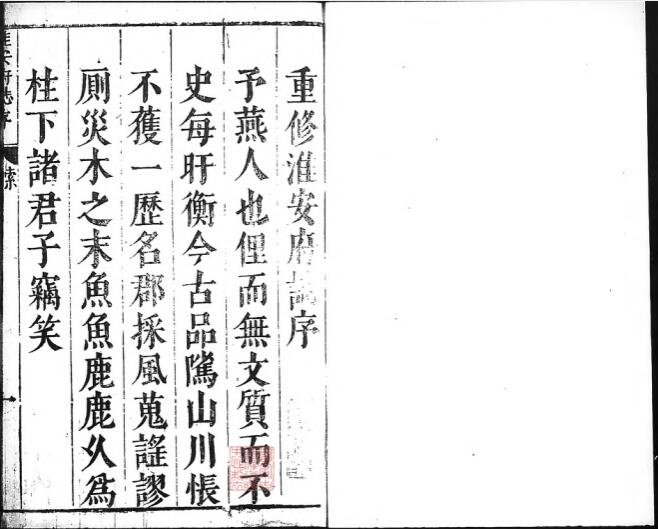 重修淮安府誌序
予燕人也俚而無文質而不
史每旴衡今古品隲山川悵
不獲一歷名郡採風蒐謠謬
厠災木之末魚魚鹿鹿久為
柱下諸君子竊笑
淮安府志序
索
一